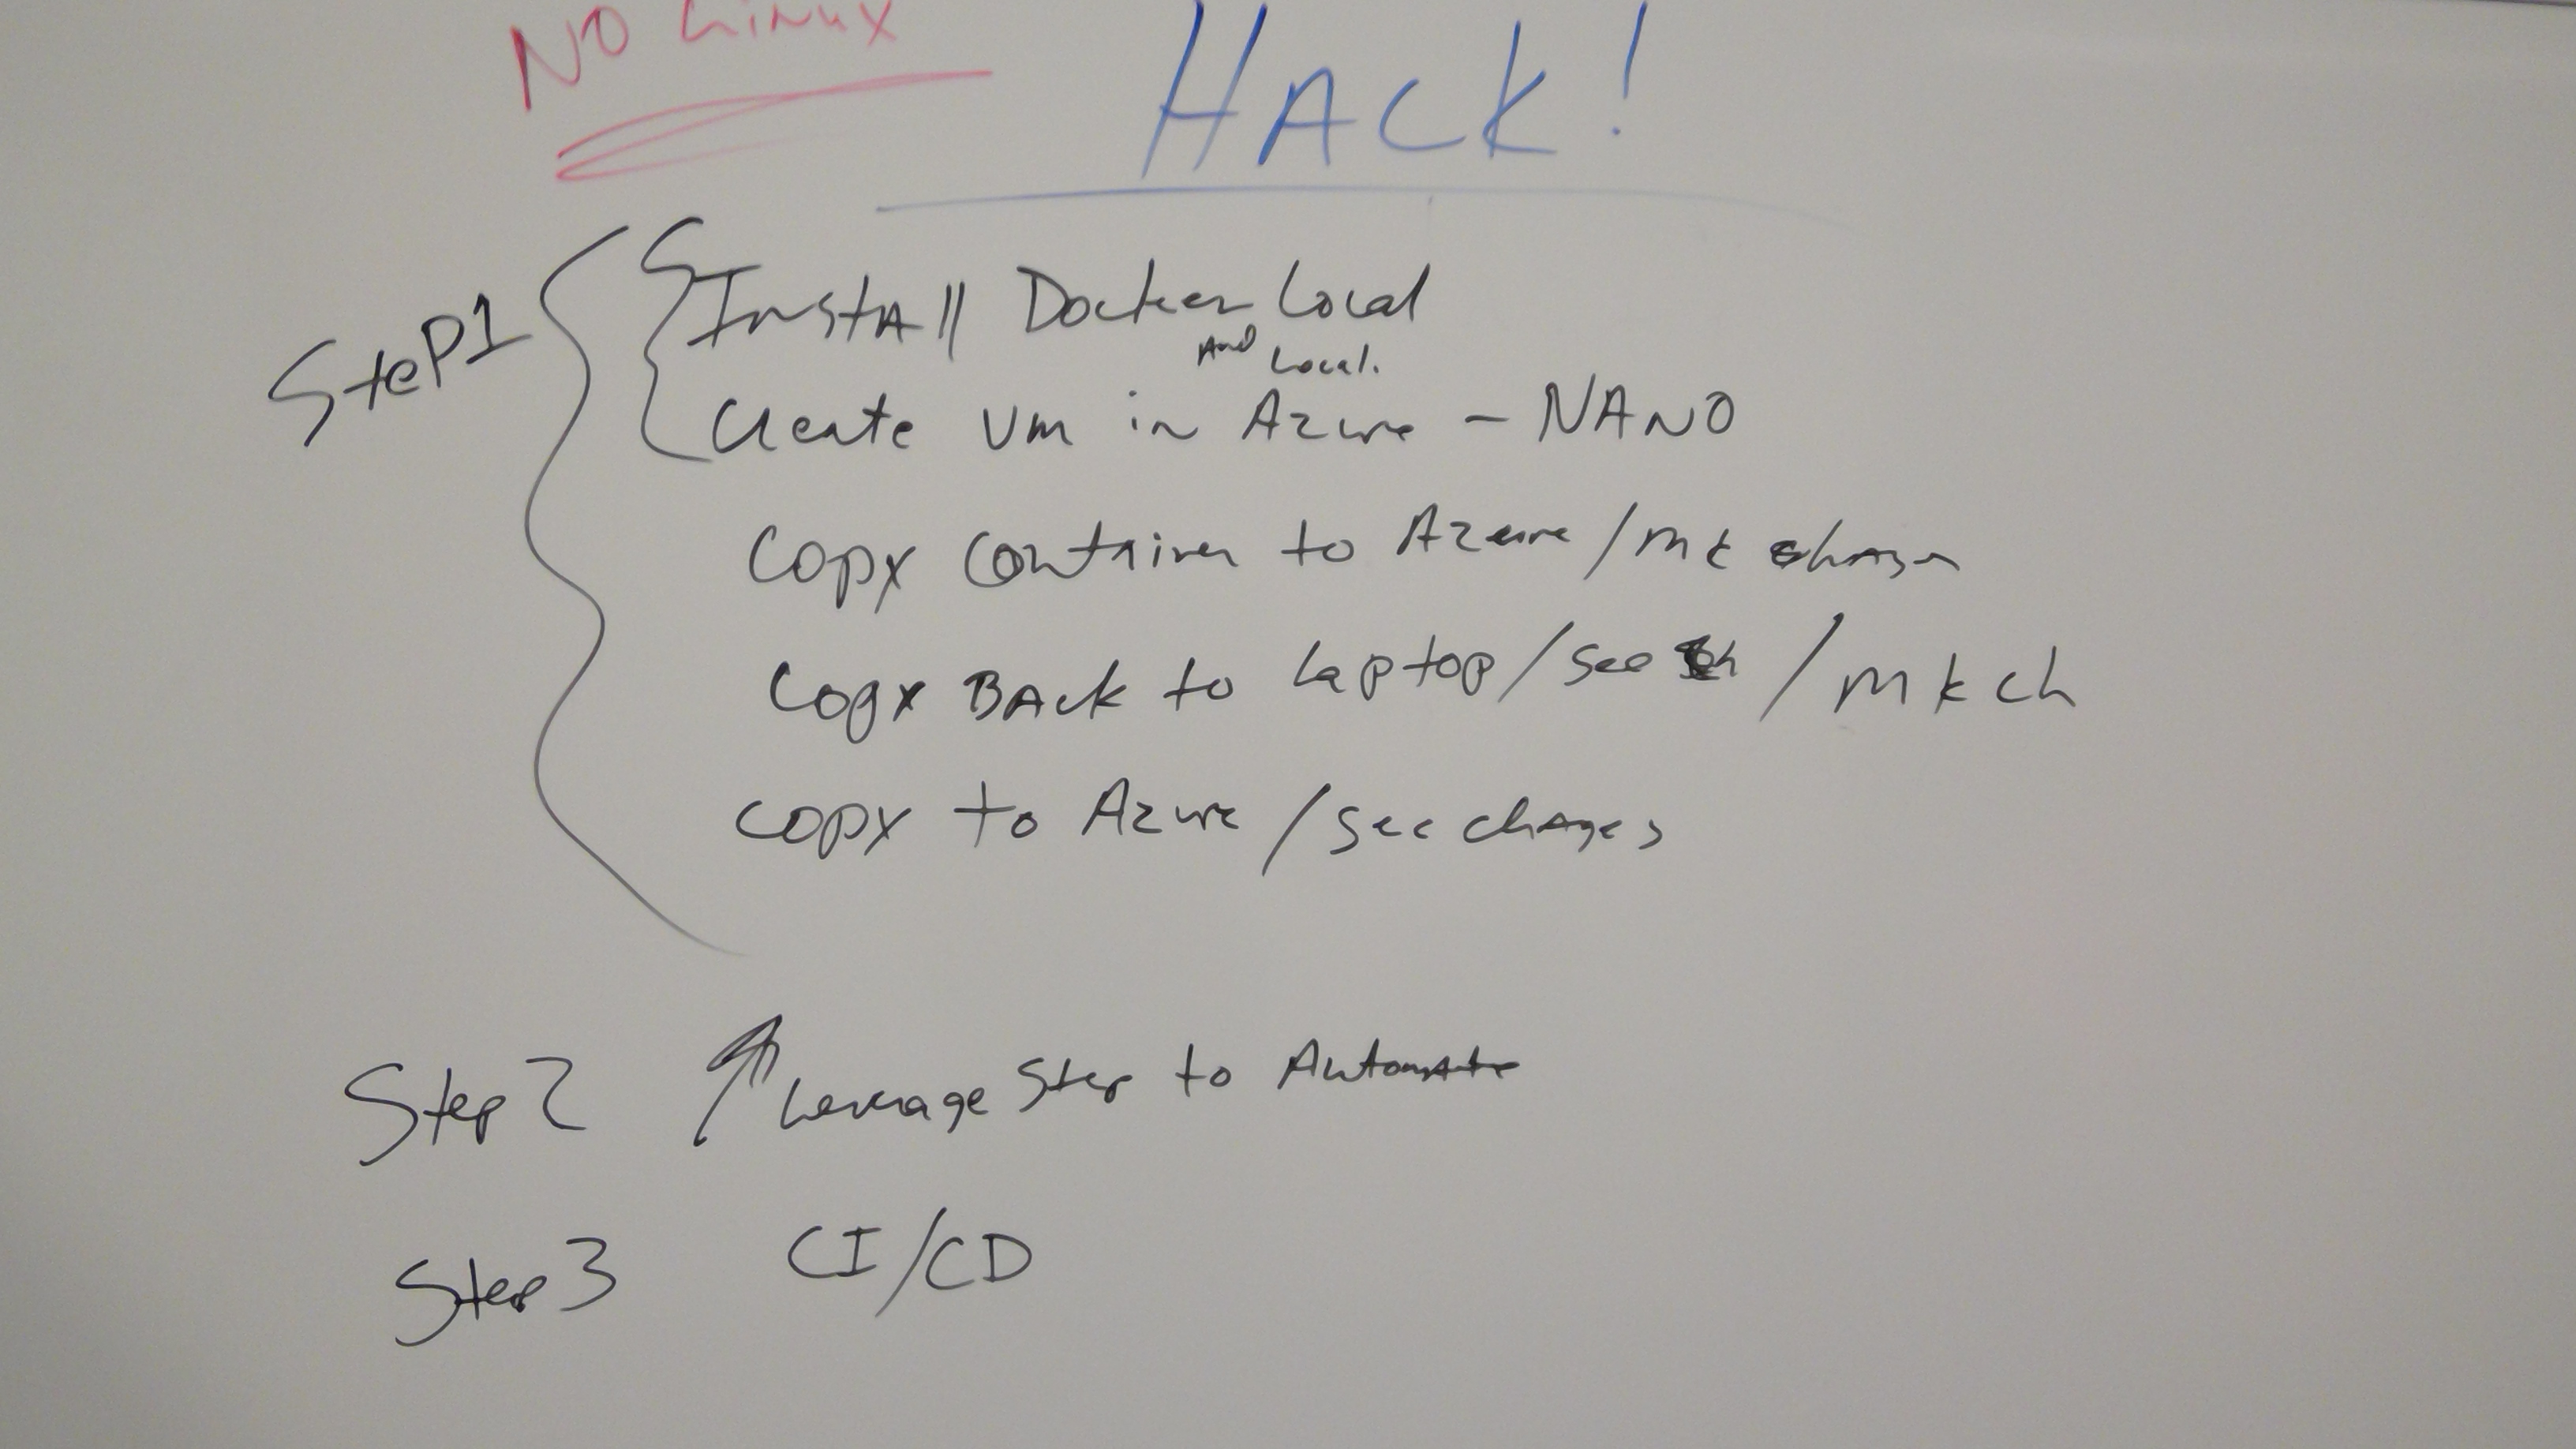 NO Linux
HACK!
Step1
Install Docker Local
And Local.
Create Vm in Azure - NANO
Copy Container to Azure / mk change
Copy Back to laptop / see ch / mk ch
Copy to Azure / see chages
Step 2 Leverage Step to Automate
Step 3 CI/CD